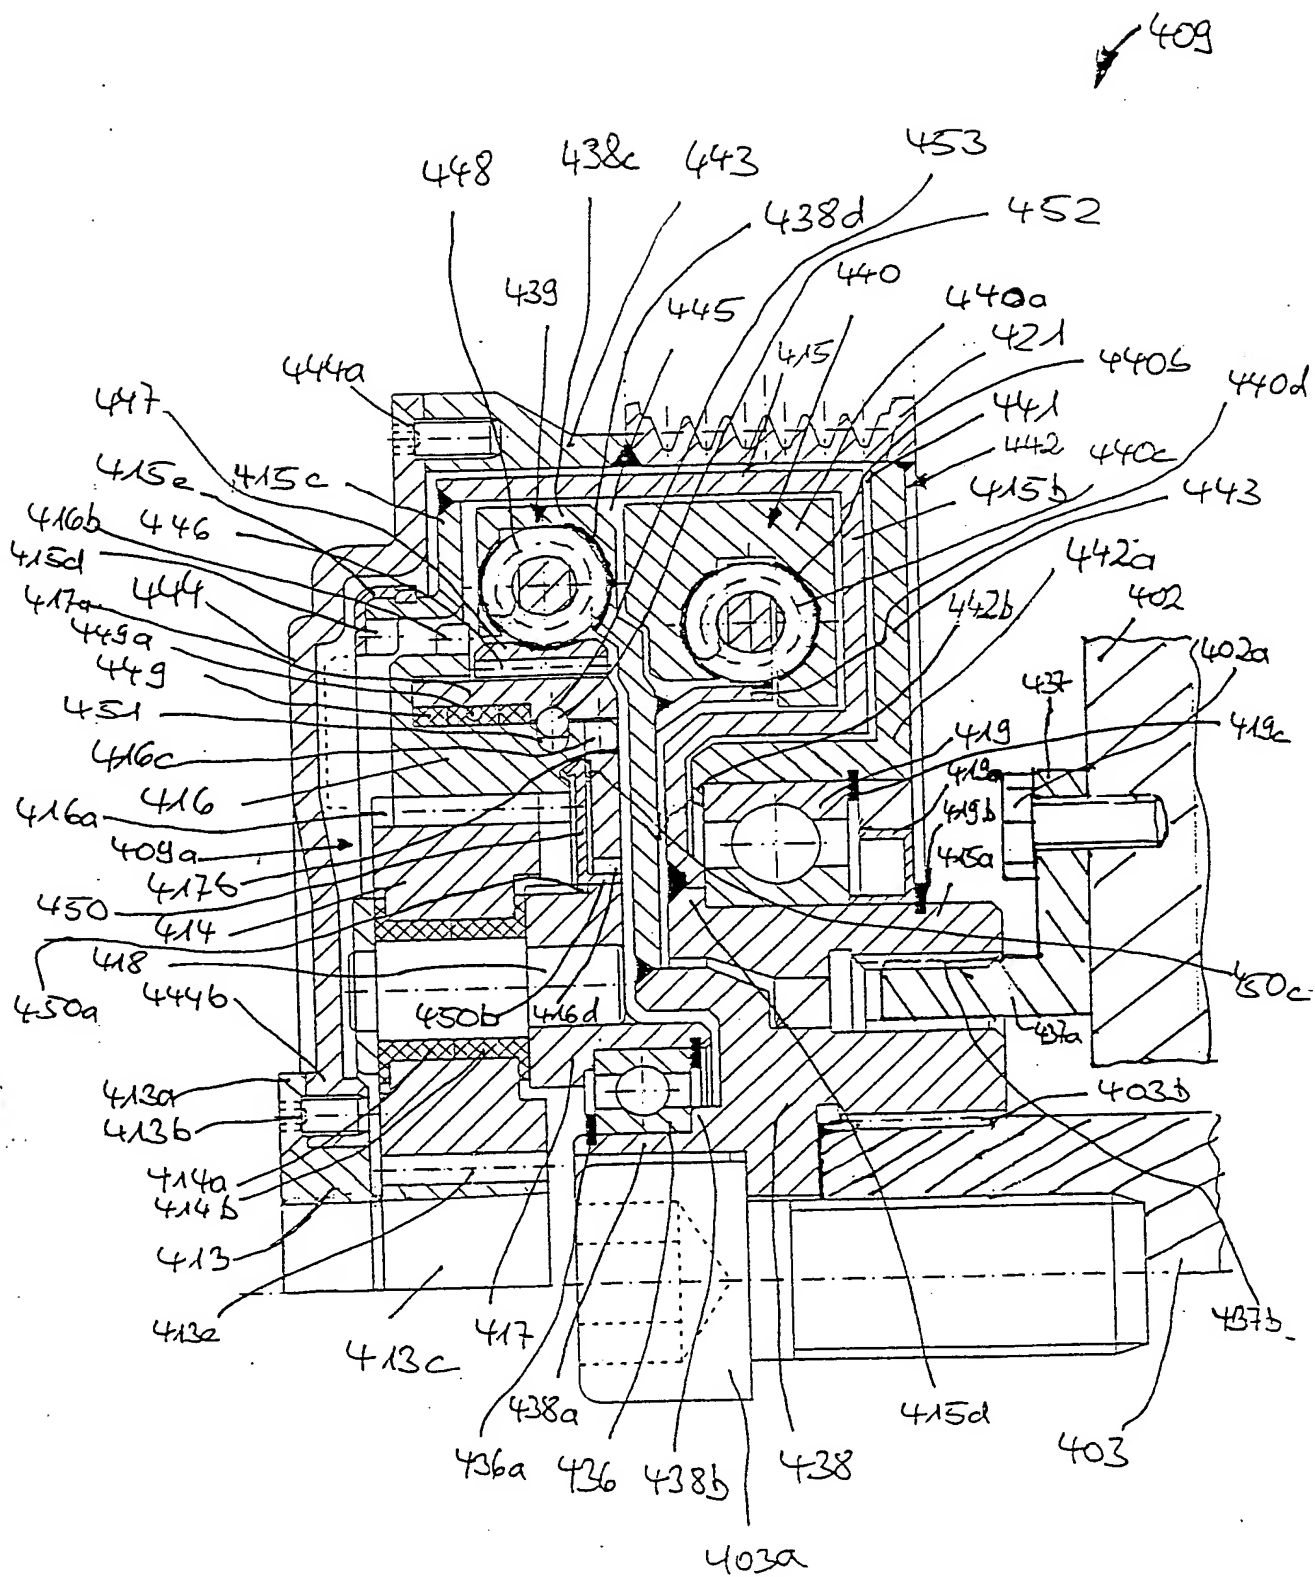 409
453
448
438c
443
438d
452
439
445
440
440a
415
421
440b
440d
444a
447
441
442
440c
415e
415c
415b
443
416b
446
415d
442a
444
442b
402
417a
402a
449a
437
449
451
419
419c
416c
419a
416
416a
419b
409a
415a
417b
450
414
418
450a
444b
450b
416d
450c
437a
413a
403b
413b
414a
414b
413
413e
417
437b
413c
438a
415d
436a
436
438b
438
403
403a